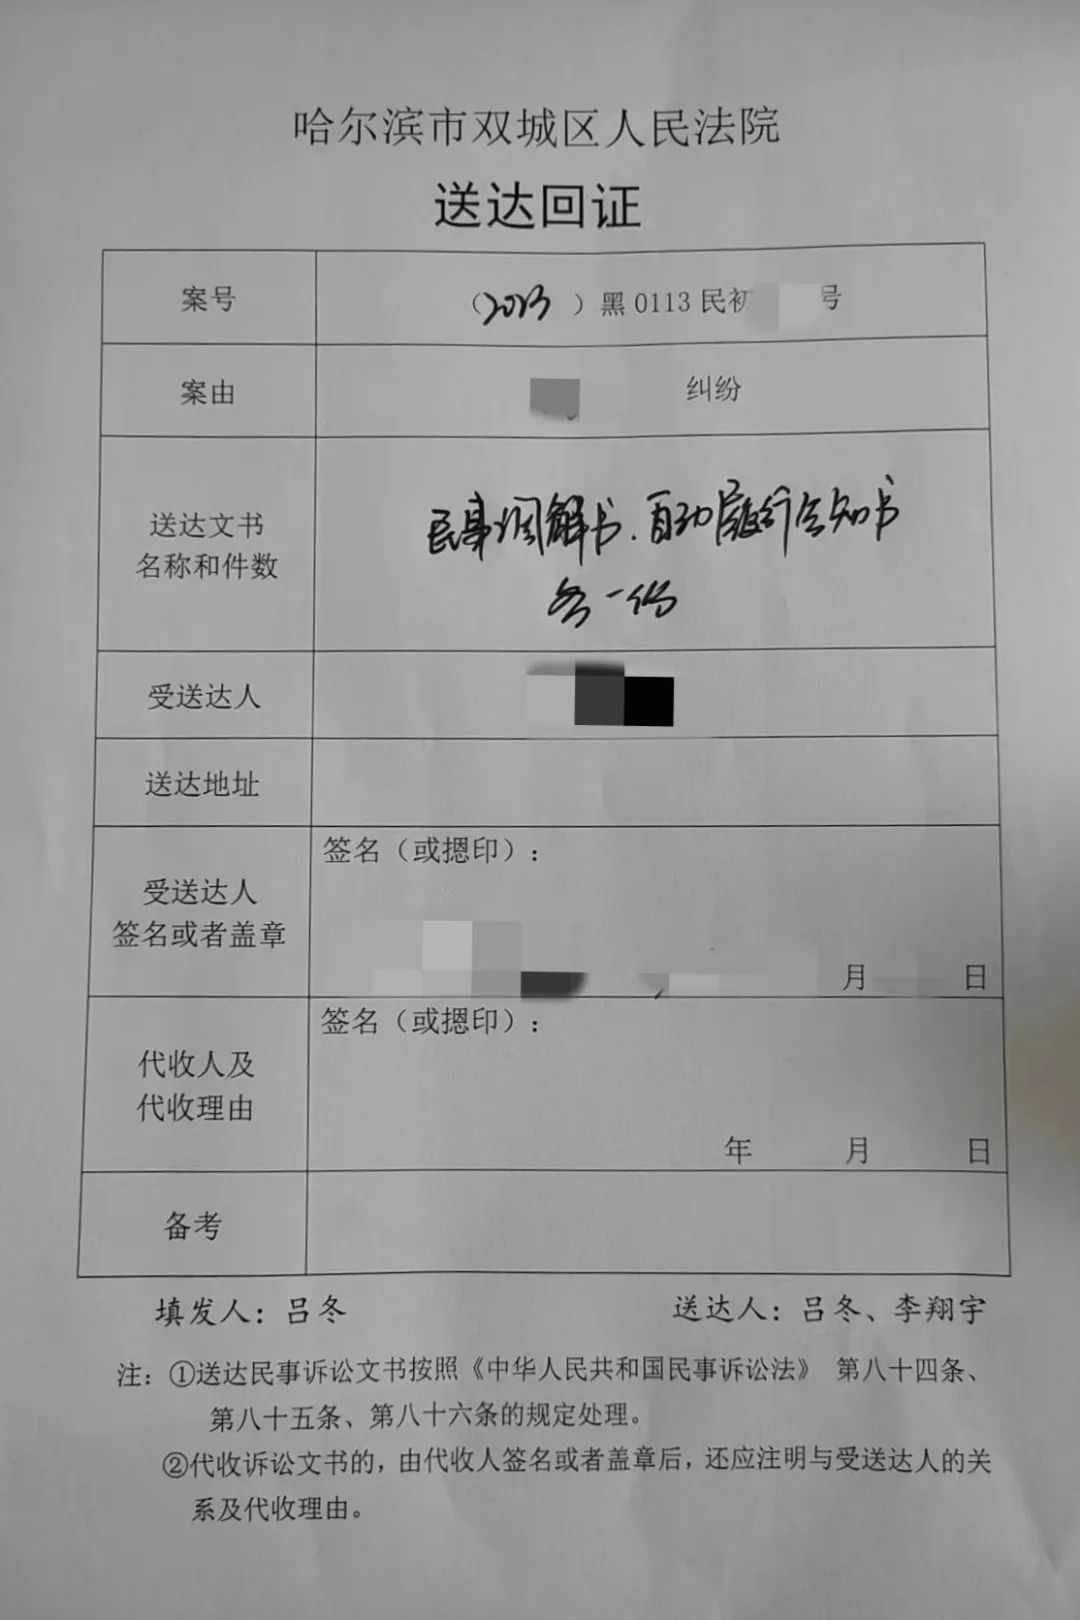 哈尔滨市双城区人民法院
送达回证
案号
（2023）黑0113民初 号
案由
纠纷
送达文书
名称和件数
民事调解书、自动履行告知书
各一份
受送达人
送达地址
受送达人
签名或者盖章
签名（或摁印）：
月 日
代收人及
代收理由
签名（或摁印）：
年 月 日
备考
填发人：吕冬 送达人：吕冬、李翔宇
注：①送达民事诉讼文书按照《中华人民共和国民事诉讼法》 第八十四条、
第八十五条、第八十六条的规定处理。
②代收诉讼文书的，由代收人签名或者盖章后，还应注明与受送达人的关
系及代收理由。